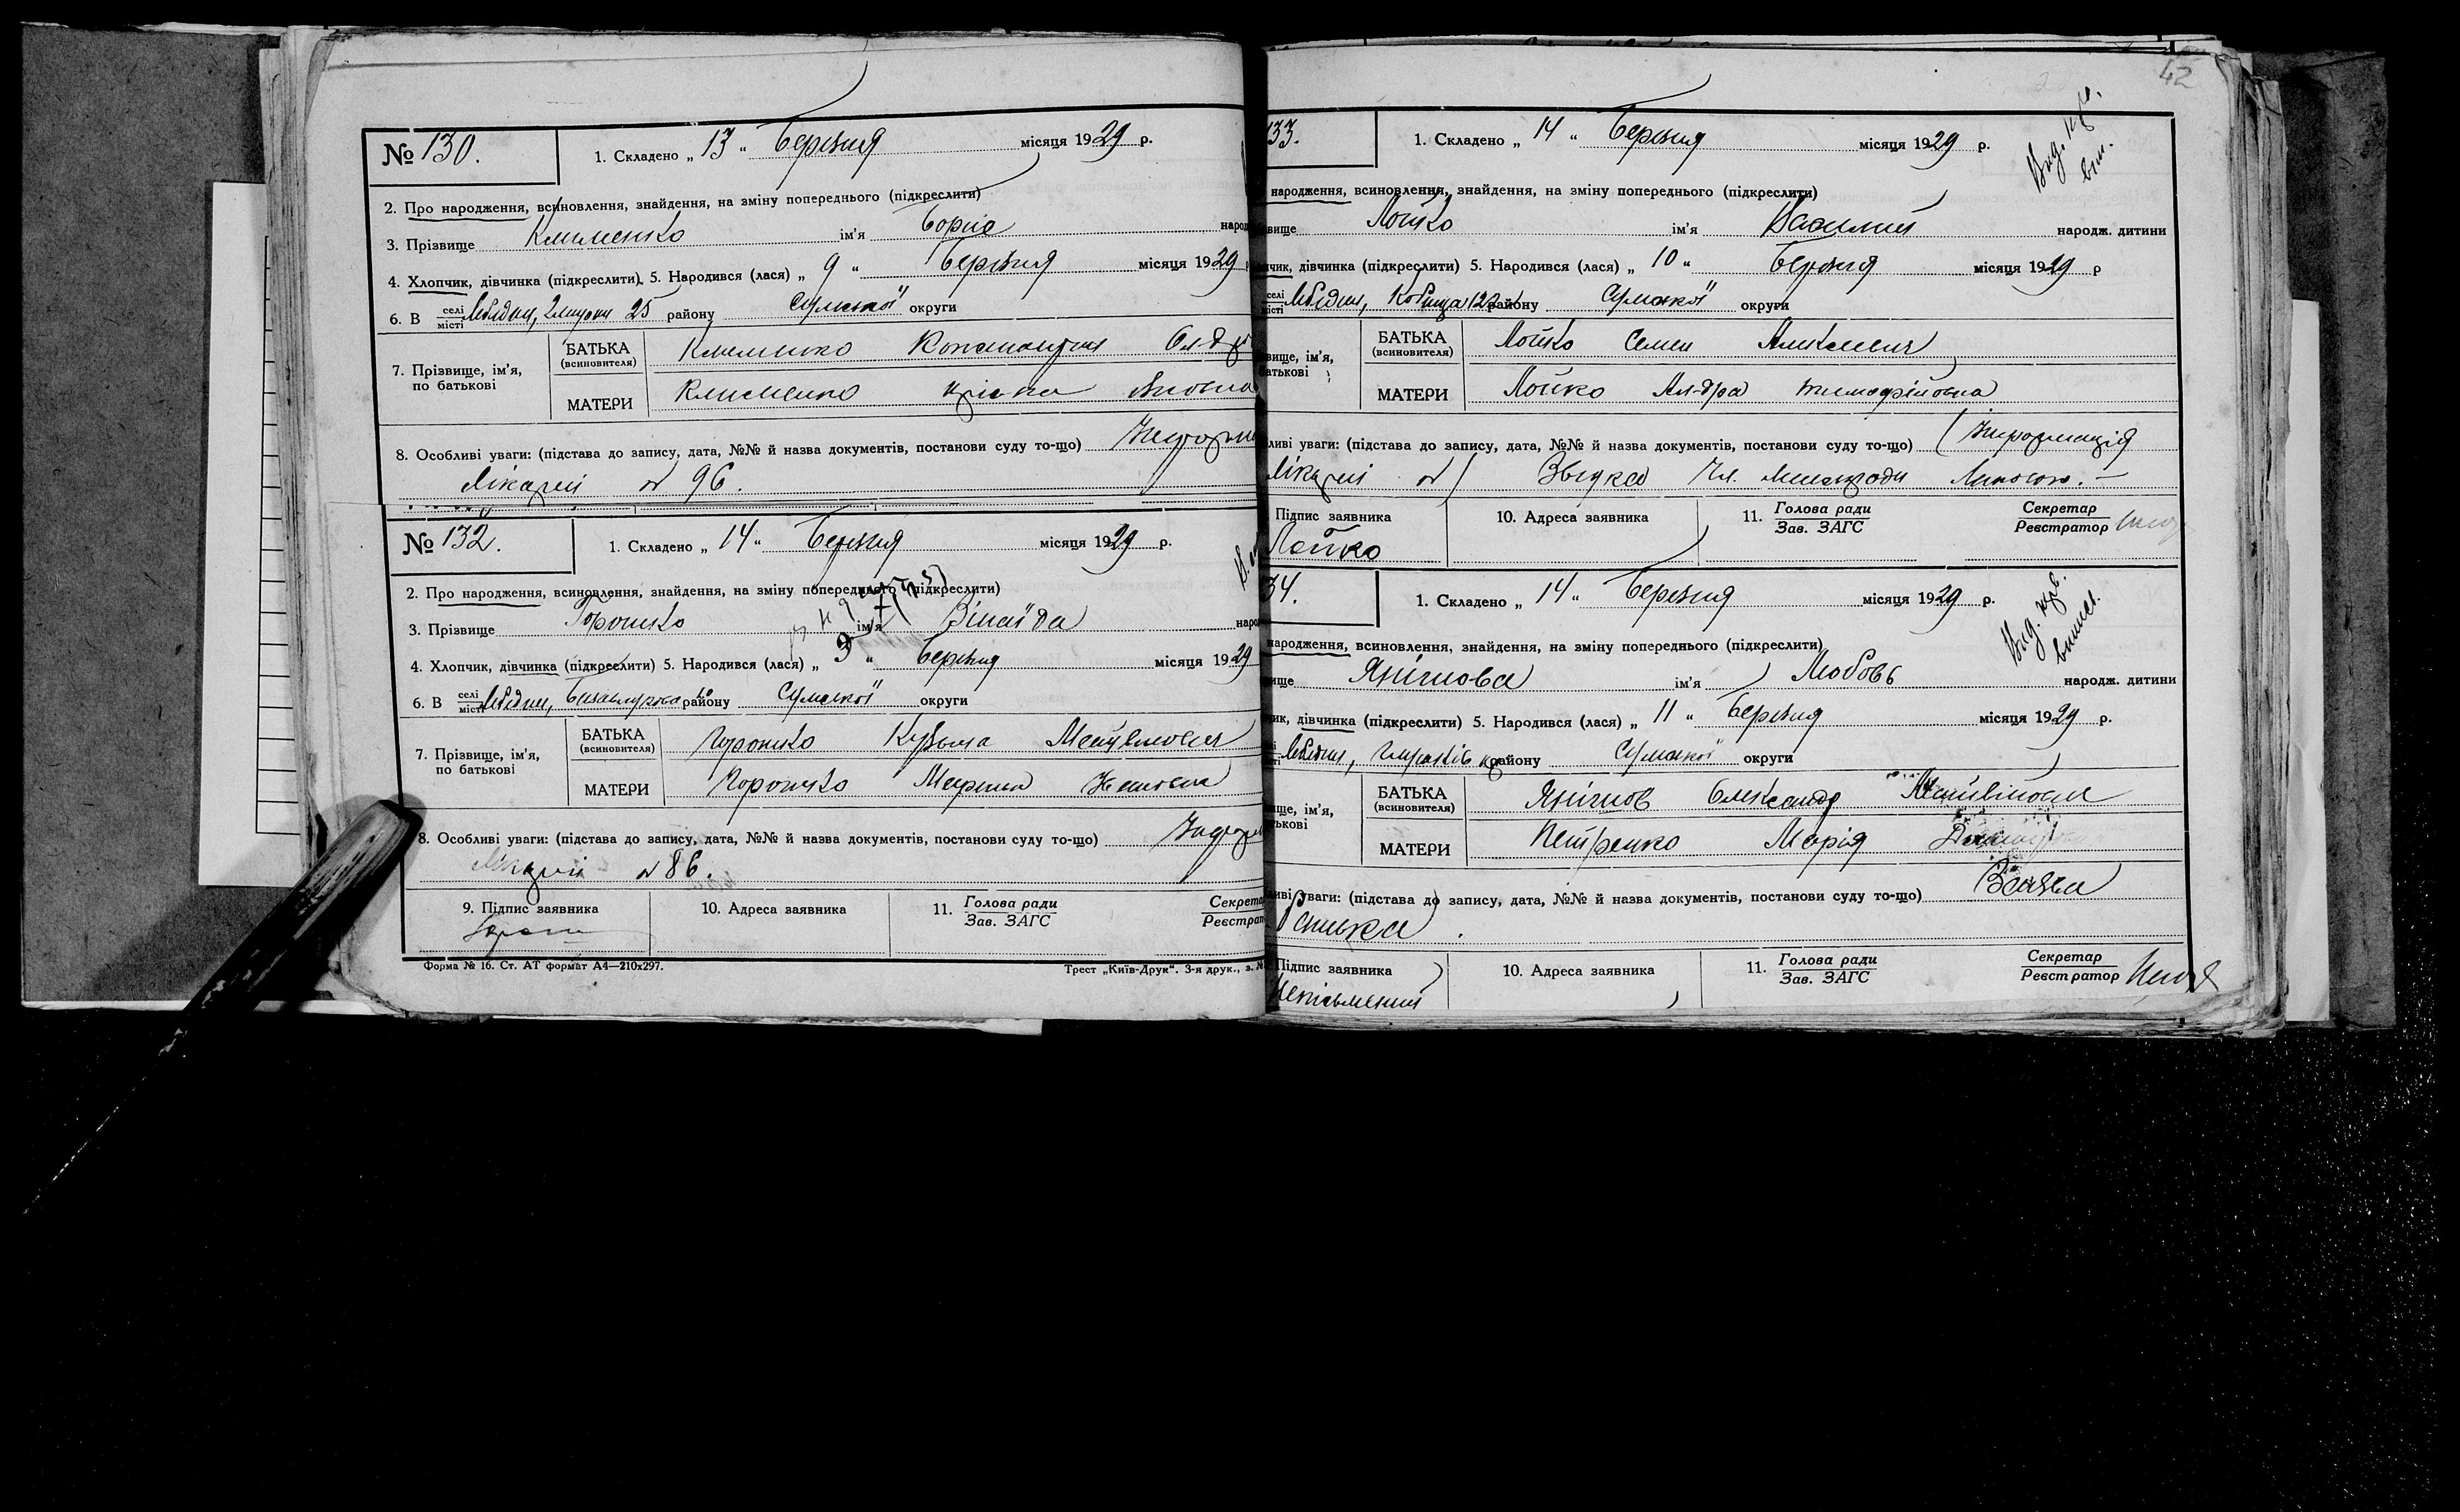 42
№ 130.
1. Складено „ 13 “ Березня місяця 1929 р.
2. Про народження, всиновлення, знайдення, на зміну попереднього (підкреслити)
3. Прізвище Клименко ім'я Борис народ
4. Хлопчик, дівчинка (підкреслити) 5. Народився (лася) „ 9 “ Березня місяця 1929
6. В селі місті Лебедин, 25 району Сумської округи
7. Прізвище, ім'я, по батькові
БАТЬКА (всиновителя) Клименко Константин Ол-др
МАТЕРИ Клименко
8. Особливі уваги: (підстава до запису, дата, №№ й назва документів, постанови суду то-що) Інформ
Лікарні № 96.
№ 132.
1. Складено „ 14 “ Березня місяця 1929 р.
2. Про народження, всиновлення, знайдення, на зміну попереднього (підкреслити)
3. Прізвище Горошко ім'я Зінаїда наро
4. Хлопчик, дівчинка (підкреслити) 5. Народився (лася) „ 3 “ Березня місяця 1929
6. В селі місті Лебедин, району Сумської округи
7. Прізвище, ім'я, по батькові
БАТЬКА (всиновителя) Горошко Кузьма Матвійович
МАТЕРИ Горошко Марина
8. Особливі уваги: (підстава до запису, дата, №№ й назва документів, постанови суду то-що) Інформ
Лікарні № 86.
9. Підпис заявника 10. Адреса заявника 11. Голова ради Зав. ЗАГС Секретар Реєстрат
Форма № 16. Ст. АТ формат А4—210х297. Трест „Київ-Друк“. 3-я друк., з. №
33.
1. Складено „ 14 “ Березня місяця 1929 р.
Вид. вип.
народження, всиновлення, знайдення, на зміну попереднього (підкреслити)
вище Лойко ім'я Василий народж. дитини
пчик, дівчинка (підкреслити) 5. Народився (лася) „ 10 “ Березня місяця 1929 р
селі місті Лебедин, Кобища 122 району Сумської округи
вище, ім'я, батькові
БАТЬКА (всиновителя) Лойко Семен Алексеевич
МАТЕРИ Лойко Ал-дра Тимофіївна
ливі уваги: (підстава до запису, дата, №№ й назва документів, постанови суду то-що) (Інформація
Лікарні №)
Підпис заявника 10. Адреса заявника 11. Голова ради Зав. ЗАГС Секретар Реєстратор
Лойко
34.
1. Складено „ 14 “ Березня місяця 1929 р.
Вид. вип.
народження, всиновлення, знайдення, на зміну попереднього (підкреслити)
вище ім'я Любовь народж. дитини
чик, дівчинка (підкреслити) 5. Народився (лася) „ 11 “ Березня місяця 1929 р.
Лебедин, району Сумської округи
ище, ім'я, тькові
БАТЬКА (всиновителя) Олександр Матвійович
МАТЕРИ Петренко Марія
ливі уваги: (підстава до запису, дата, №№ й назва документів, постанови суду то-що) Заява
Батька.
Підпис заявника 10. Адреса заявника 11. Голова ради Зав. ЗАГС Секретар Реєстратор
Неписьменний